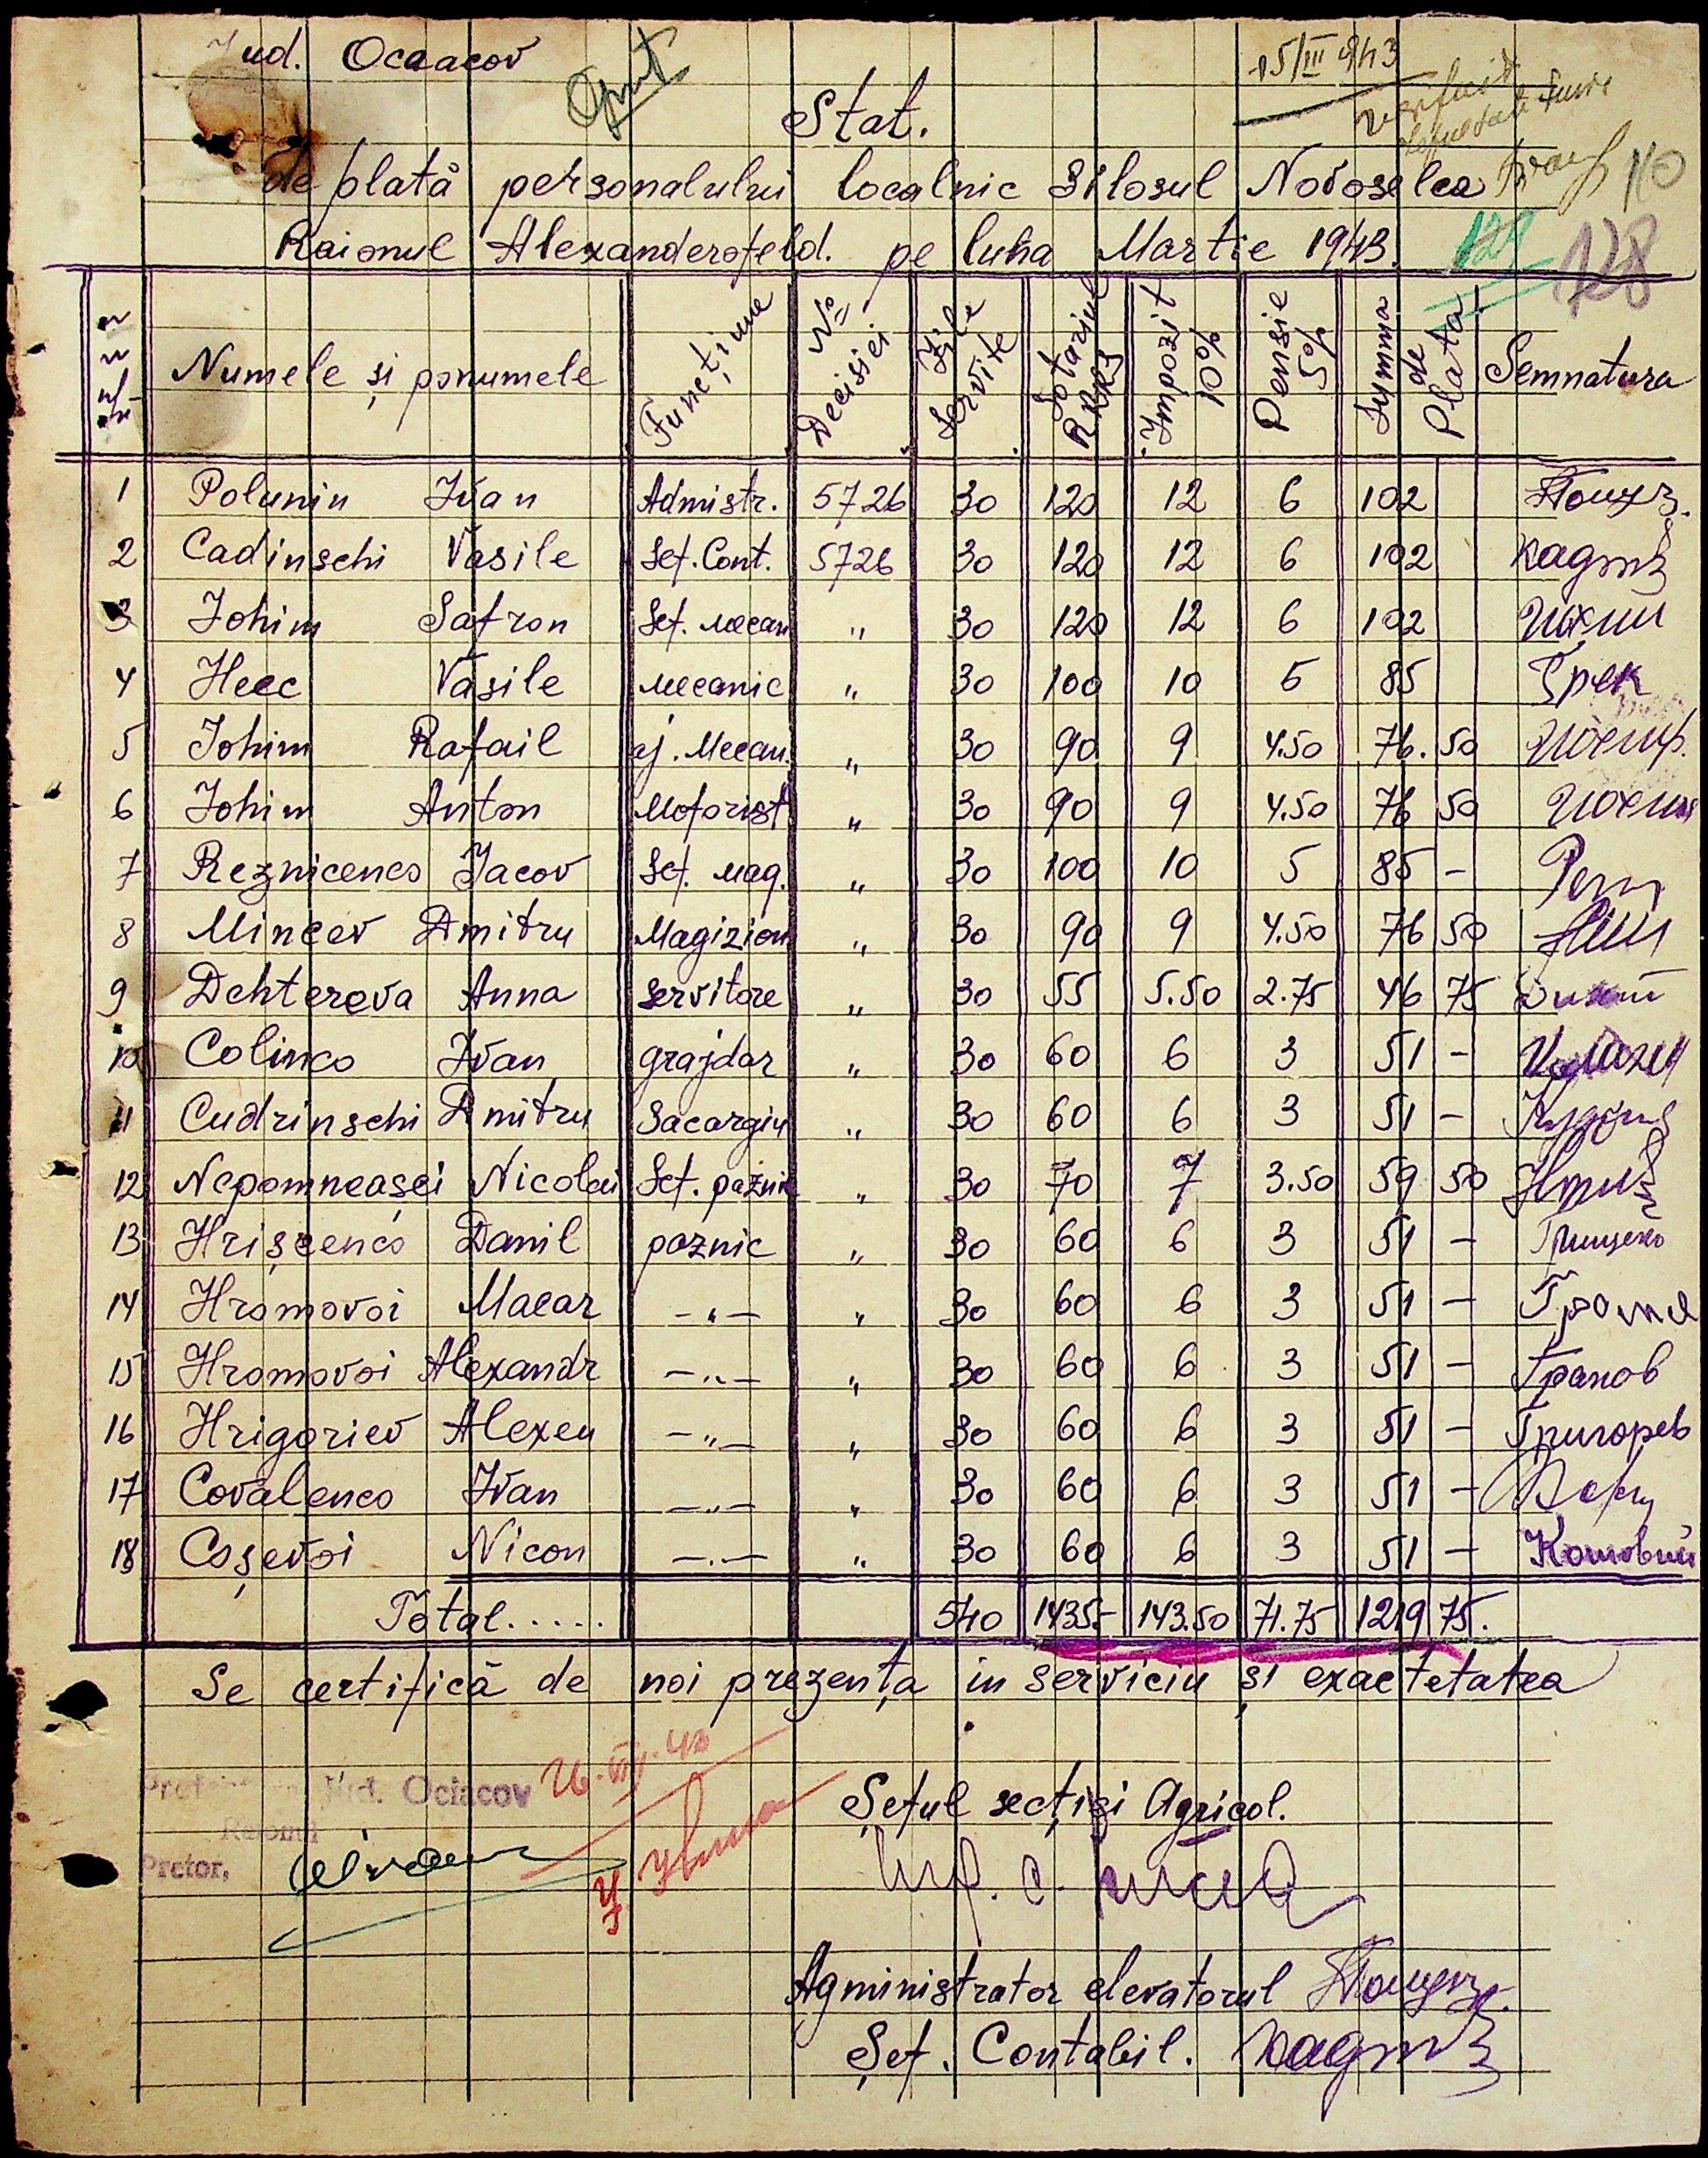 Jud. Ocaacov
15/III 943
Stat.
de plată personalului localnic silosul Novoselca
110
Raionul Alexanderofeld. pe luna Martie 1943.
129 128
Numele și ponumele Funcțiune № Decisiei Zile servite Sotariul RKKS Impozit 10% Pensie 5% Summa de Plata Semnatura
1 Polunin Ivan Admistr. 5726 30 120 12 6 102
2 Cadinschi Vasile Șef. Cont. 5726 30 120 12 6 102
3 Iohim Safron Șef. mecan „ 30 120 12 6 102 Иохим
4 Hrec Vasile mecanic „ 30 100 10 5 85 Грек
5 Iohim Rafail aj. Mecan. „ 30 90 9 4.50 76. 50
6 Iohim Anton Motorist „ 30 90 9 4.50 76 50 Иохим
7 Reznicenco Iacov Șef. mag. „ 30 100 10 5 85 -
8 Mincev Dmitru Magizion „ 30 90 9 4.50 76 50
9 Dehtereva Anna servitore „ 30 55 5.50 2.75 46 75
10 Colinco Ivan grajdar „ 30 60 6 3 51 -
11 Cudrinschi Dmitru Sacargiu „ 30 60 6 3 51 -
12 Nepomneașci Nicolai Șef. paznic „ 30 70 7 3.50 59 50
13 Hrișcenco Danil paznic „ 30 60 6 3 51 - Грищенко
14 Hromovoi Macar -„- „ 30 60 6 3 51 -
15 Hromovoi Alexandr -„- „ 30 60 6 3 51 -
16 Hrigoriev Alexeu -„- „ 30 60 6 3 51 - Григорев
17 Covalenco Ivan -„- „ 30 60 6 3 51 -
18 Coșevoi Nicon -„- „ 30 60 6 3 51 -
Total..... 540 1435- 143.50 71.75 1219 75.
Se certifică de noi prezența in serviciu și exactetatea
Jud. Ociacov
Pretor,
Șeful secției Agricol.
Agministrator elevatorul
Șef. Contabil.